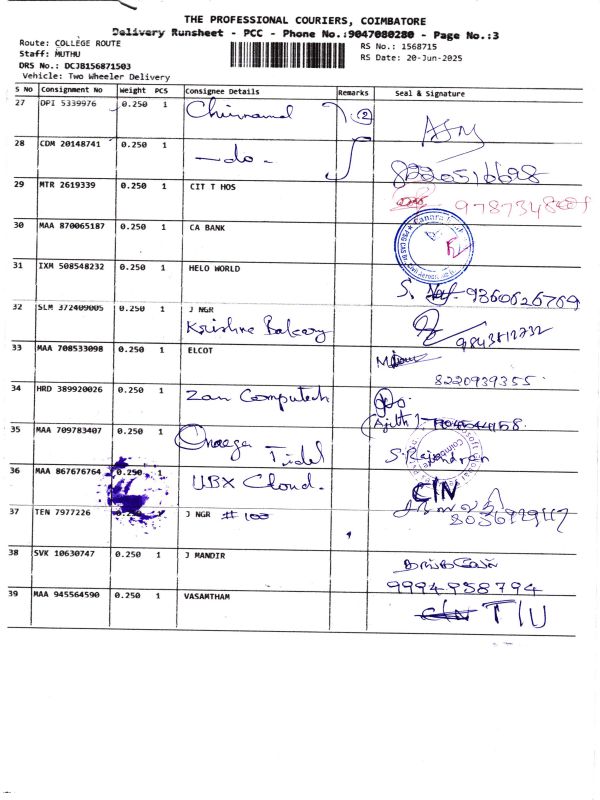 THE PROFESSIONAL COURIERS, COIMBATORE
Delivery Runsheet - PCC - Phone No.:9047080280 - Page No.:3
Route: COLLEGE ROUTE
Staff: MUTHU
DRS No.: DCJB156871503
Vehicle: Two Wheeler Delivery
RS No.: 1568715
RS Date: 20-Jun-2025
S No Consignment No Weight PCS Consignee Details Remarks Seal & Signature
27 DPI 5339976 0.250 1 2
28 CDM 20148741 0.250 1 -do-
8220516628
29 MTR 2619339 0.250 1 CIT T HOS
30 MAA 870065187 0.250 1 CA BANK
31 IXM 508548232 0.250 1 HELO WORLD
S. 9360626769
32 SLM 372409005 0.250 1 J NGR
Krishna Bakery
9843812732
33 MAA 708533098 0.250 1 ELCOT
8220939355
34 HRD 389920026 0.250 1 Zan Computech
Ajith
35 MAA 709783407 0.250 1 Tidel
S. Rajendran
36 MAA 867676764 0.250 1 UBX Cloud.
C/N
37 TEN 7977226 0.250 1 J NGR #100
38 SVK 10630747 0.250 1 J MANDIR
9994958794
39 MAA 945564590 0.250 1 VASAMTHAM
C/N T/U